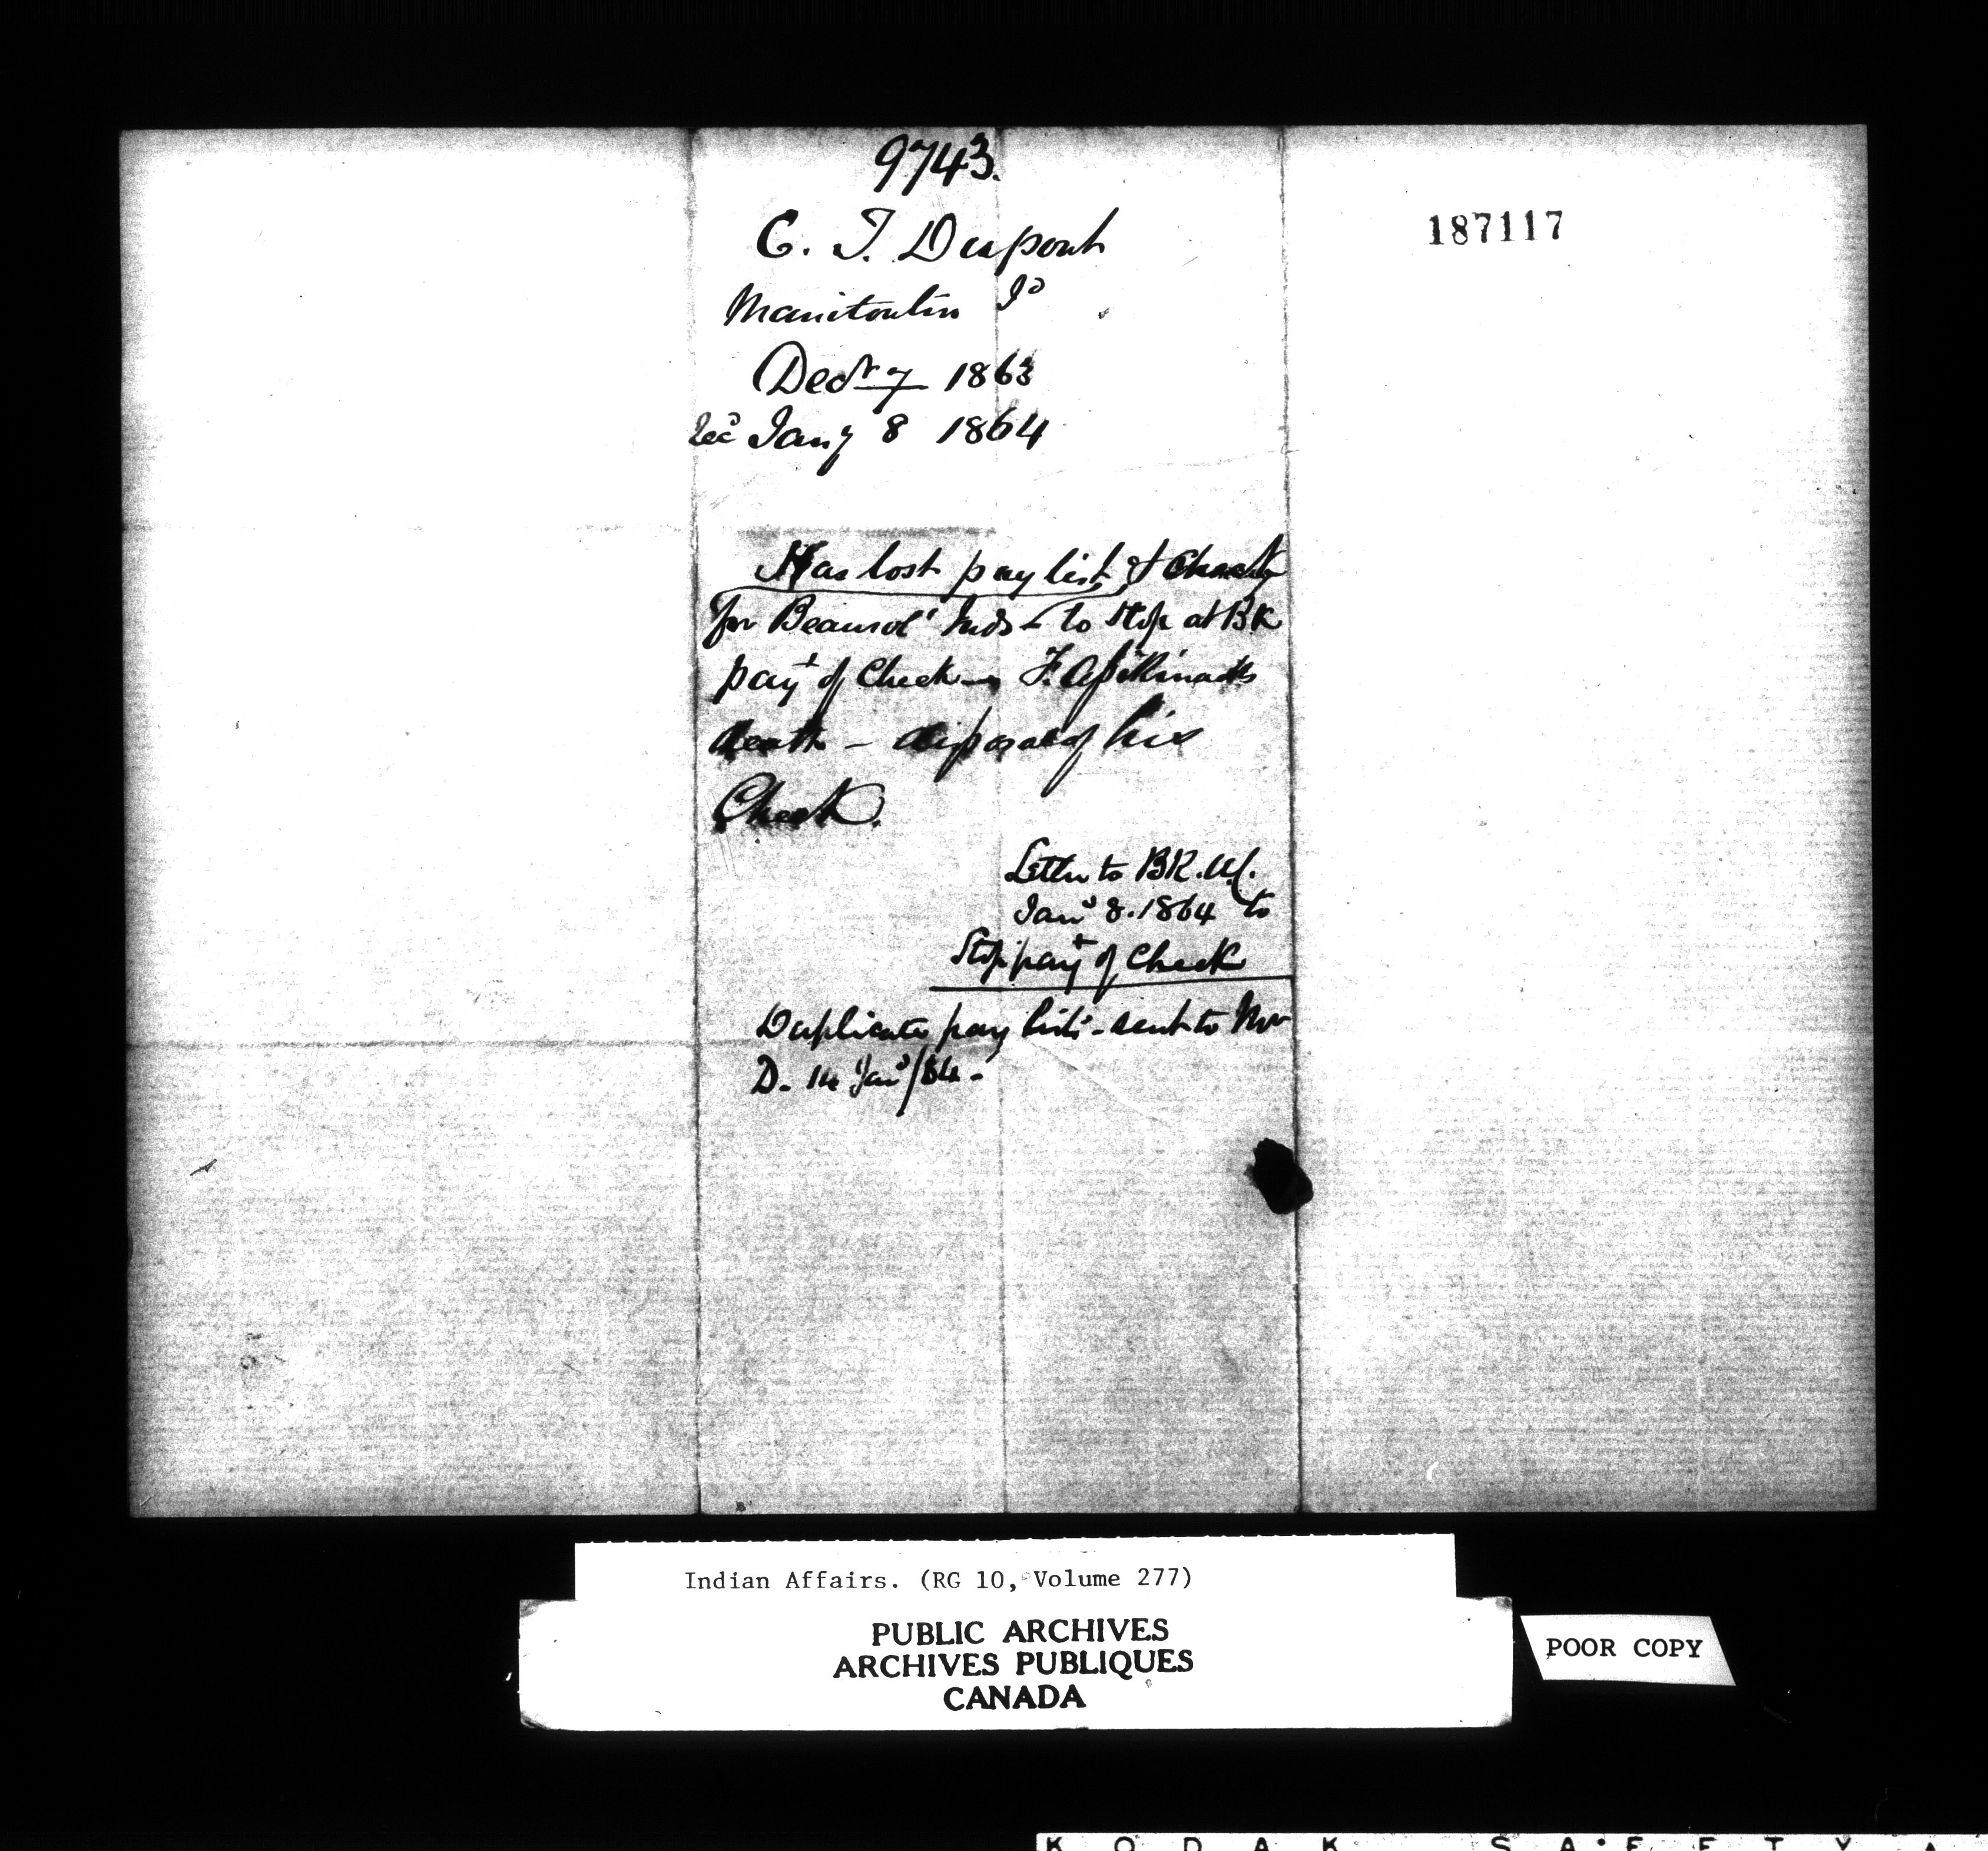 9743.
187117
C. T. Dupont
Manitoulin Id
Decr 7 1863
Recd Jany 8 1864
Has lost pay list, & Check
for Beausol' Inds - to stop at BK
payt of Check - F. Assikinack's
death - disposal of his
Check.
Letter to BK. U.C.
Jany 8. 1864 to
Stop payt of Check
Duplicate pay lists - sent to Mr
D. 14 Jany/64 -
Indian Affairs. (RG 10, Volume 277)
PUBLIC ARCHIVES
ARCHIVES PUBLIQUES
CANADA
POOR COPY
KODAK SAFETY A